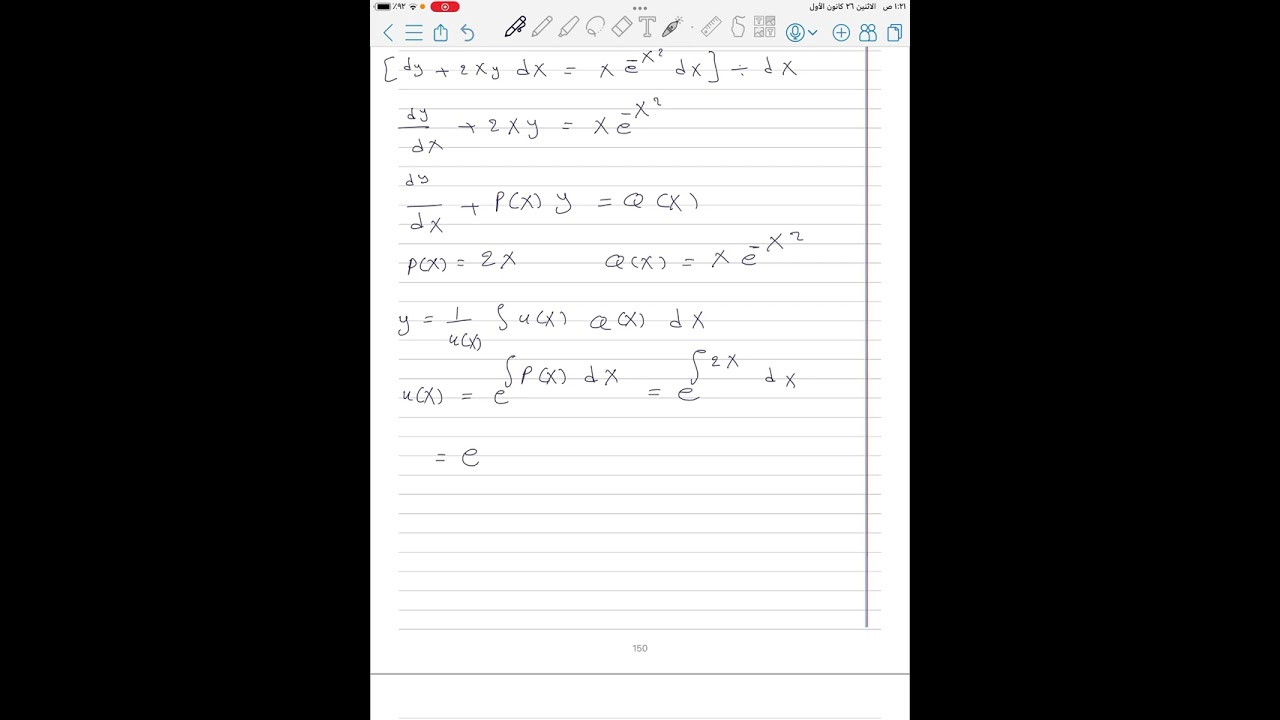 ١:٢١ ص الاثنين ٢٦ كانون الأول ٩٢٪
[dy + 2xy dx = x e^-x^2 dx] ÷ dx
dy/dx + 2xy = x e^-x^2
dy/dx + P(x) y = Q(x)
P(x) = 2x Q(x) = x e^-x^2
y = 1/u(x) ∫ u(x) Q(x) dx
u(x) = e^∫P(x) dx = e^∫2x dx
= e
150